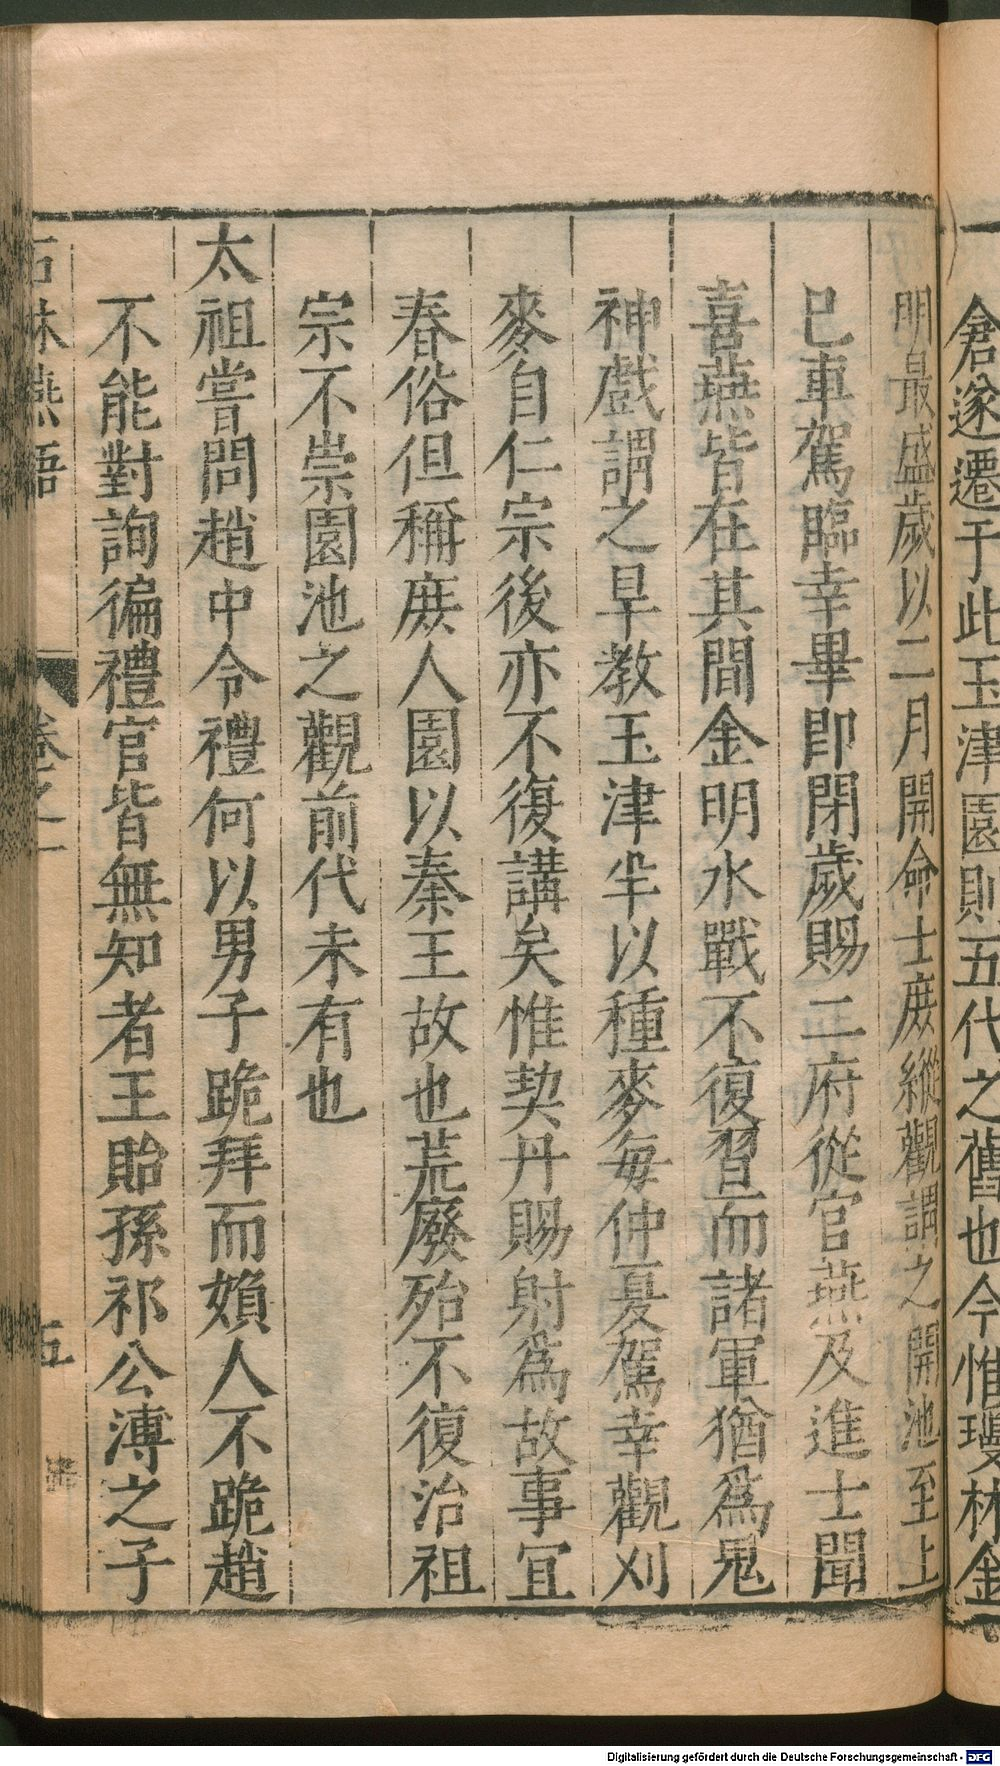 倉遂遷于此玉津園則五代之舊也今惟瓊林金
明最盛歲以二月開命士庶縱觀謂之開池至上
巳車駕臨幸畢即閉歲賜二府從官燕及進士聞
喜燕皆在其間金明水戰不復習而諸軍猶爲鬼
神戲謂之旱教玉津半以種麥每仲夏駕幸觀刈
麥自仁宗後亦不復講矣惟契丹賜射爲故事宜
春俗但稱庶人園以秦王故也荒廢殆不復治祖
宗不崇園池之觀前代未有也
太祖嘗問趙中令禮何以男子跪拜而婦人不跪趙
不能對詢徧禮官皆無知者王貽孫祁公溥之子
石林燕語 卷之一 五
Digitalisierung gefördert durch die Deutsche Forschungsgemeinschaft - DFG